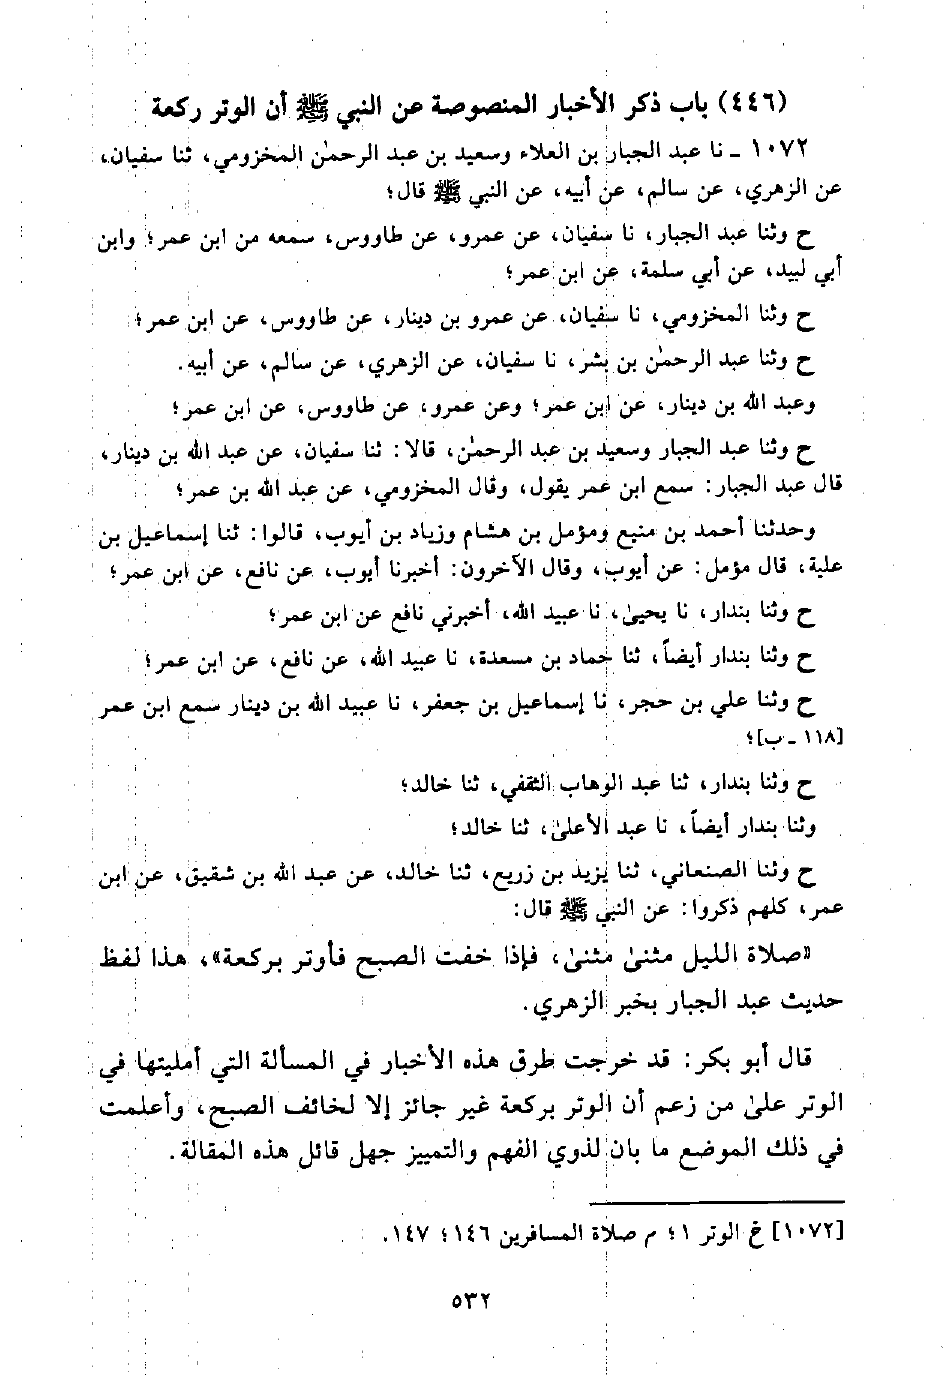 (٤٤٦) باب ذكر الأخبار المنصوصة عن النبي ﷺ أن الوتر ركعة
١٠٧٢ ـ نا عبد الجبار بن العلاء وسعيد بن عبد الرحمٰن المخزومي، ثنا سفيان،
عن الزهري، عن سالم، عن أبيه، عن النبي ﷺ قال؛
ح وثنا عبد الجبار، نا سفيان، عن عمرو، عن طاووس، سمعه من ابن عمر؛ وابن
أبي لبيد، عن أبي سلمة، عن ابن عمر؛
ح وثنا المخزومي، نا سفيان، عن عمرو بن دينار، عن طاووس، عن ابن عمر؛
ح وثنا عبد الرحمٰن بن بشر، نا سفيان، عن الزهري، عن سالم، عن أبيه.
وعبد الله بن دينار، عن ابن عمر؛ وعن عمرو، عن طاووس، عن ابن عمر؛
ح وثنا عبد الجبار وسعيد بن عبد الرحمٰن، قالا: ثنا سفيان، عن عبد الله بن دينار،
قال عبد الجبار: سمع ابن عمر يقول، وقال المخزومي، عن عبد الله بن عمر؛
وحدثنا أحمد بن منيع ومؤمل بن هشام وزياد بن أيوب، قالوا: ثنا إسماعيل بن
علية، قال مؤمل: عن أيوب، وقال الآخرون: أخبرنا أيوب، عن نافع، عن ابن عمر؛
ح وثنا بندار، نا يحيىٰ، نا عبيد الله، أخبرني نافع عن ابن عمر؛
ح وثنا بندار أيضاً، ثنا حماد بن مسعدة، نا عبيد الله، عن نافع، عن ابن عمر؛
ح وثنا علي بن حجر، نا إسماعيل بن جعفر، نا عبيد الله بن دينار سمع ابن عمر
[١١٨ ـ ب]؛
ح وثنا بندار، ثنا عبد الوهاب الثقفي، ثنا خالد؛
وثنا بندار أيضاً، نا عبد الأعلىٰ، ثنا خالد؛
ح وثنا الصنعاني، ثنا يزيد بن زريع، ثنا خالد، عن عبد الله بن شقيق، عن ابن
عمر، كلهم ذكروا: عن النبي ﷺ قال:
«صلاة الليل مثنىٰ مثنىٰ، فإذا خفت الصبح فأوتر بركعة»، هذا لفظ
حديث عبد الجبار بخبر الزهري.
قال أبو بكر: قد خرجت طرق هذه الأخبار في المسألة التي أمليتها في
الوتر علىٰ من زعم أن الوتر بركعة غير جائز إلا لخائف الصبح، وأعلمت
في ذلك الموضع ما بان لذوي الفهم والتمييز جهل قائل هذه المقالة.
[١٠٧٢] خ الوتر ١؛ م صلاة المسافرين ١٤٦؛ ١٤٧.
٥٣٢